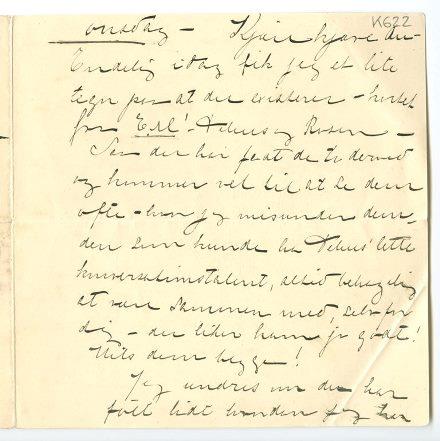 K622
onsdag – Kjære kjære du –
Endelig idag fik jeg et lite
tegn paa at du existerer –
for E.M! – Delius og Rosen –
Saa du har faat de to derned
og kommer vel til at se dem
ofte – hvor jeg misunder dem –
den som kunde ha Delius' lette
konversationstalent, altid behagelig
at være sammen med, selv for
dig – du lider ham jo godt!
Hils dem begge!
Jeg undres om du har
fått lidt